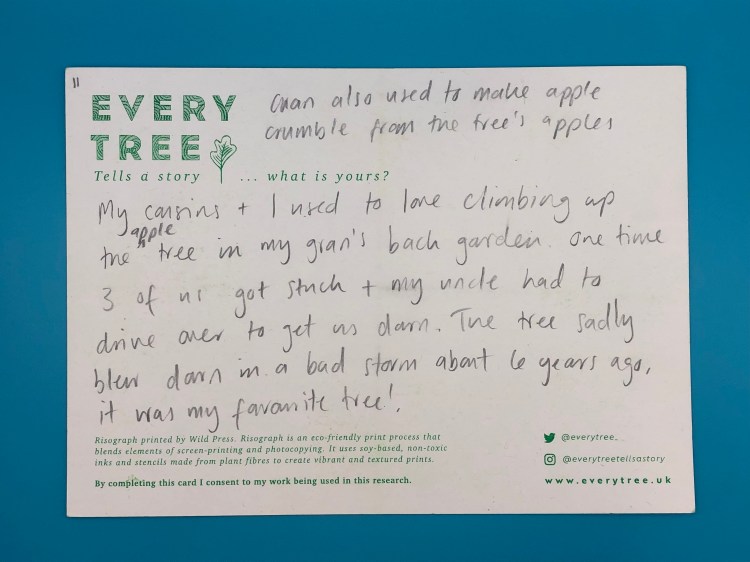 11
EVERY
TREE
Tells a story ... what is yours?
Gran also used to make apple
crumble from the tree's apples
My cousins + I used to love climbing up
the apple tree in my gran's back garden. One time
3 of us got stuck + my uncle had to
drive over to get us down. The tree sadly
blew down in a bad storm about 6 years ago,
it was my favourite tree!
Risograph printed by Wild Press. Risograph is an eco-friendly print process that
blends elements of screen-printing and photocopying. It uses soy-based, non-toxic
inks and stencils made from plant fibres to create vibrant and textured prints.
By completing this card I consent to my work being used in this research.
@everytree_
@everytreetellsastory
www.everytree.uk